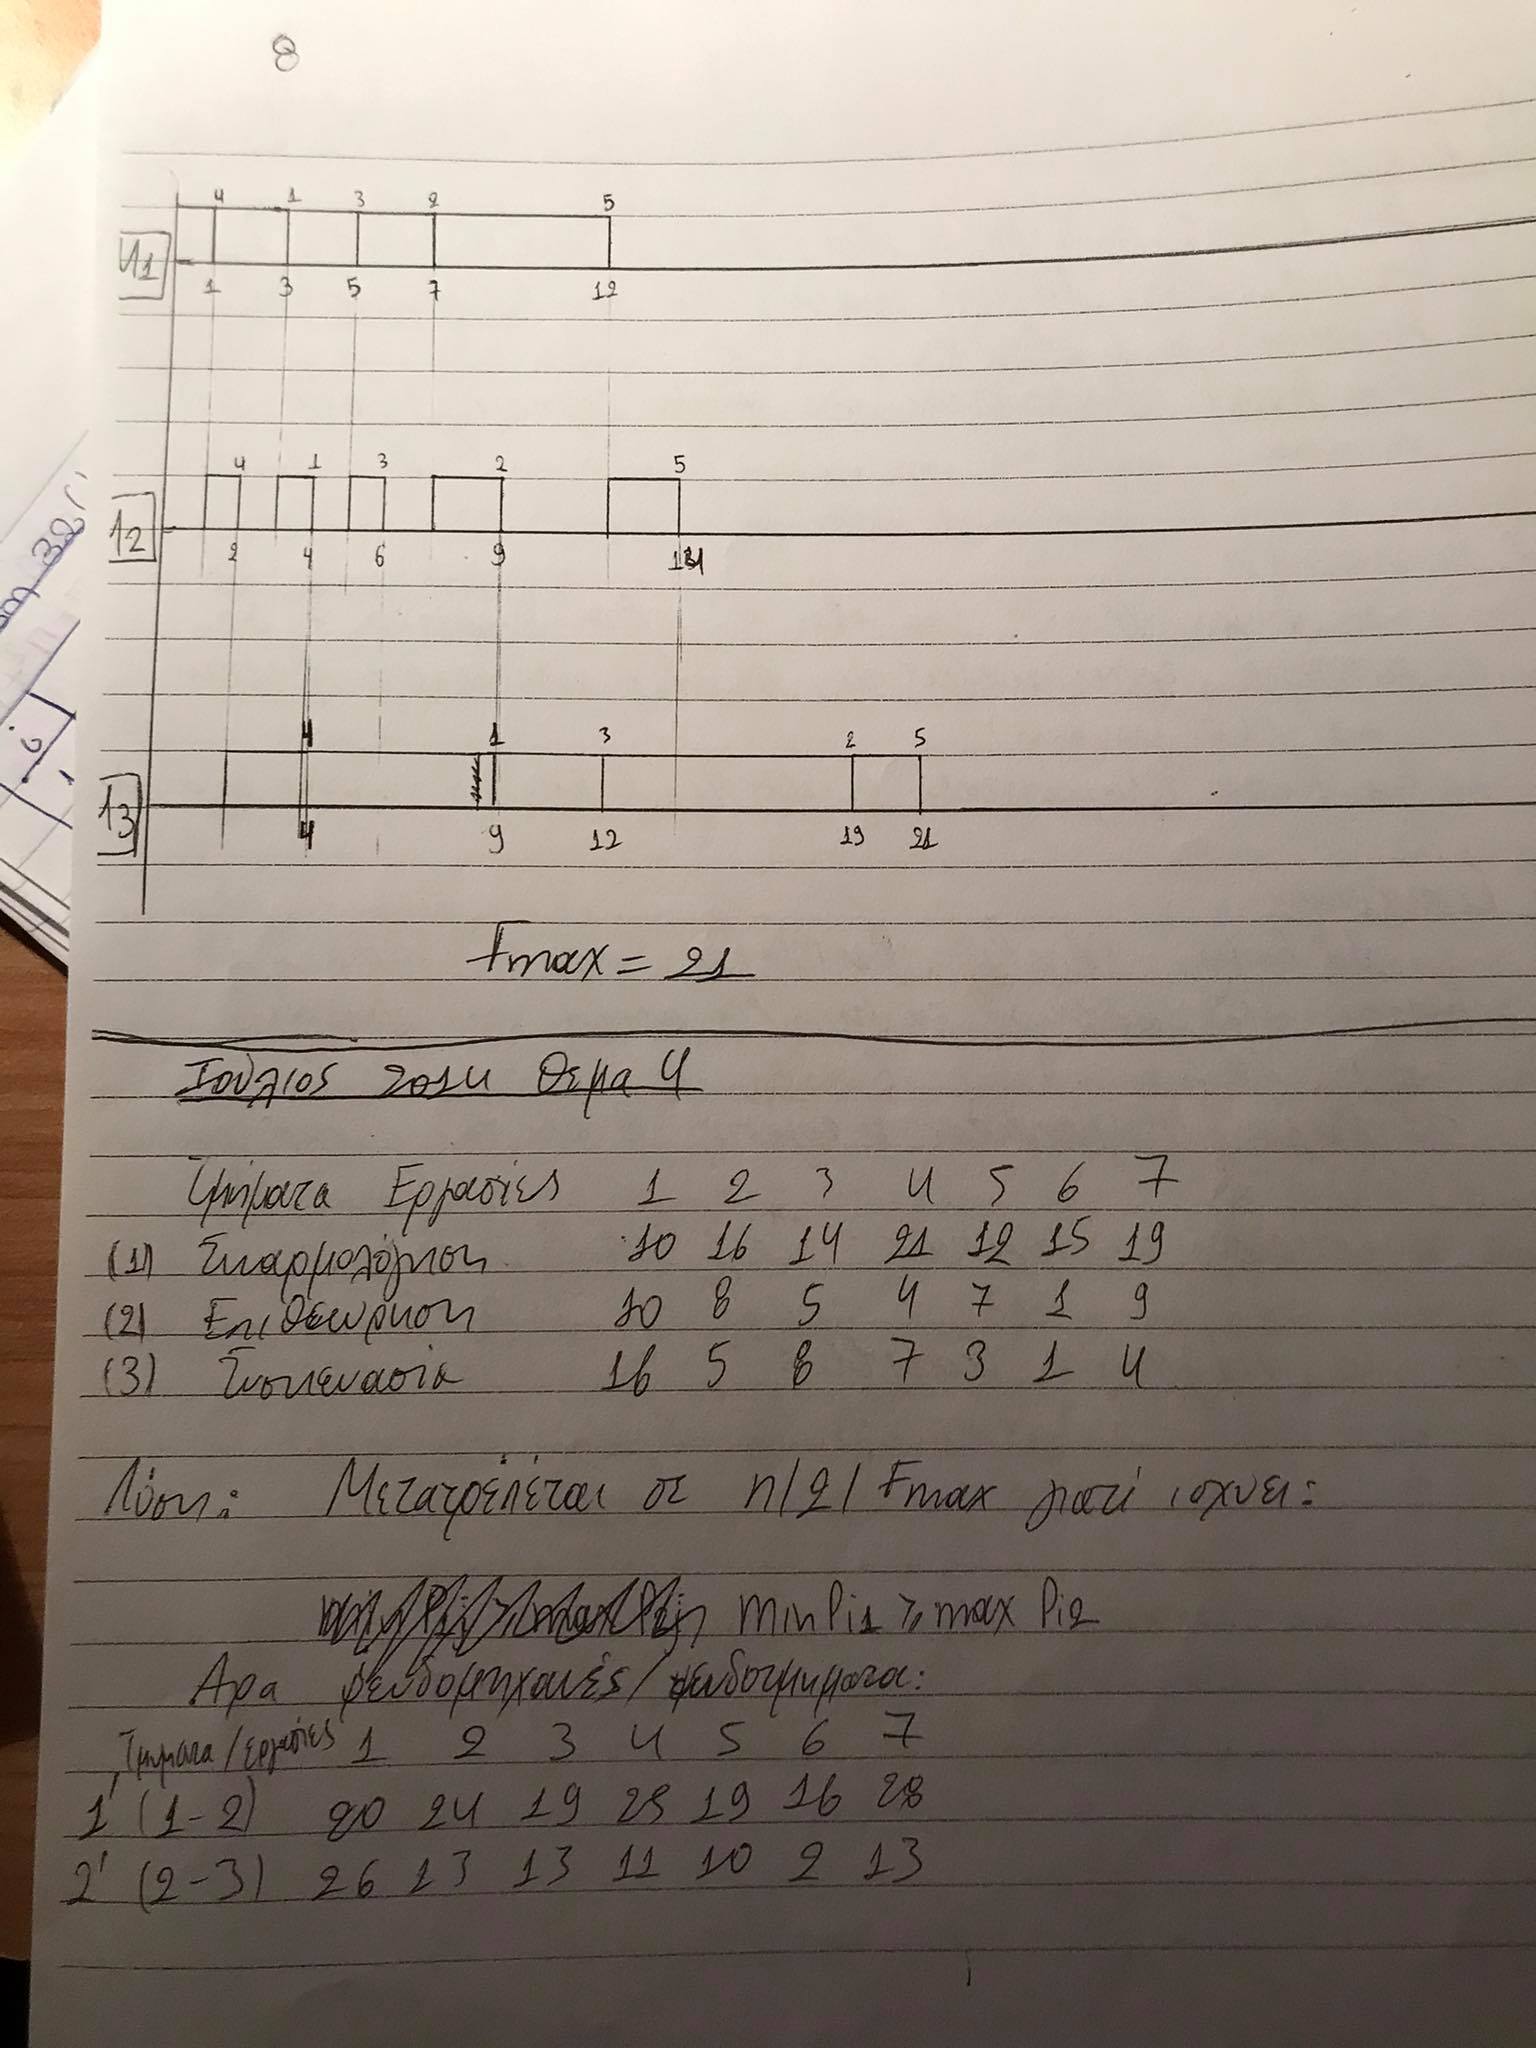 8
4 1 3 2 5
M1
1 3 5 7 12
4 1 3 2 5
M2
2 4 6 9 14
4 1 3 2 5
M3
4 9 12 19 21
Fmax = 21
Ιούλιος 2014 Θεμα 4
Τμήματα Εργασίες 1 2 3 4 5 6 7
(1) Συναρμολόγηση 10 16 14 21 12 15 19
(2) Επιθεωρηση 10 8 5 4 7 1 9
(3) Συσκευασία 16 5 8 7 3 1 4
Λύση: Μετατρέπεται σε n/2/Fmax γιατί ισχυει:
min Pi1 ≥ max Pi2
Αρα ψευδομηχανές/ψευδοτμηματα:
Τμηματα/εργασίες 1 2 3 4 5 6 7
1' (1-2) 20 24 19 25 19 16 28
2' (2-3) 26 13 13 11 10 2 13